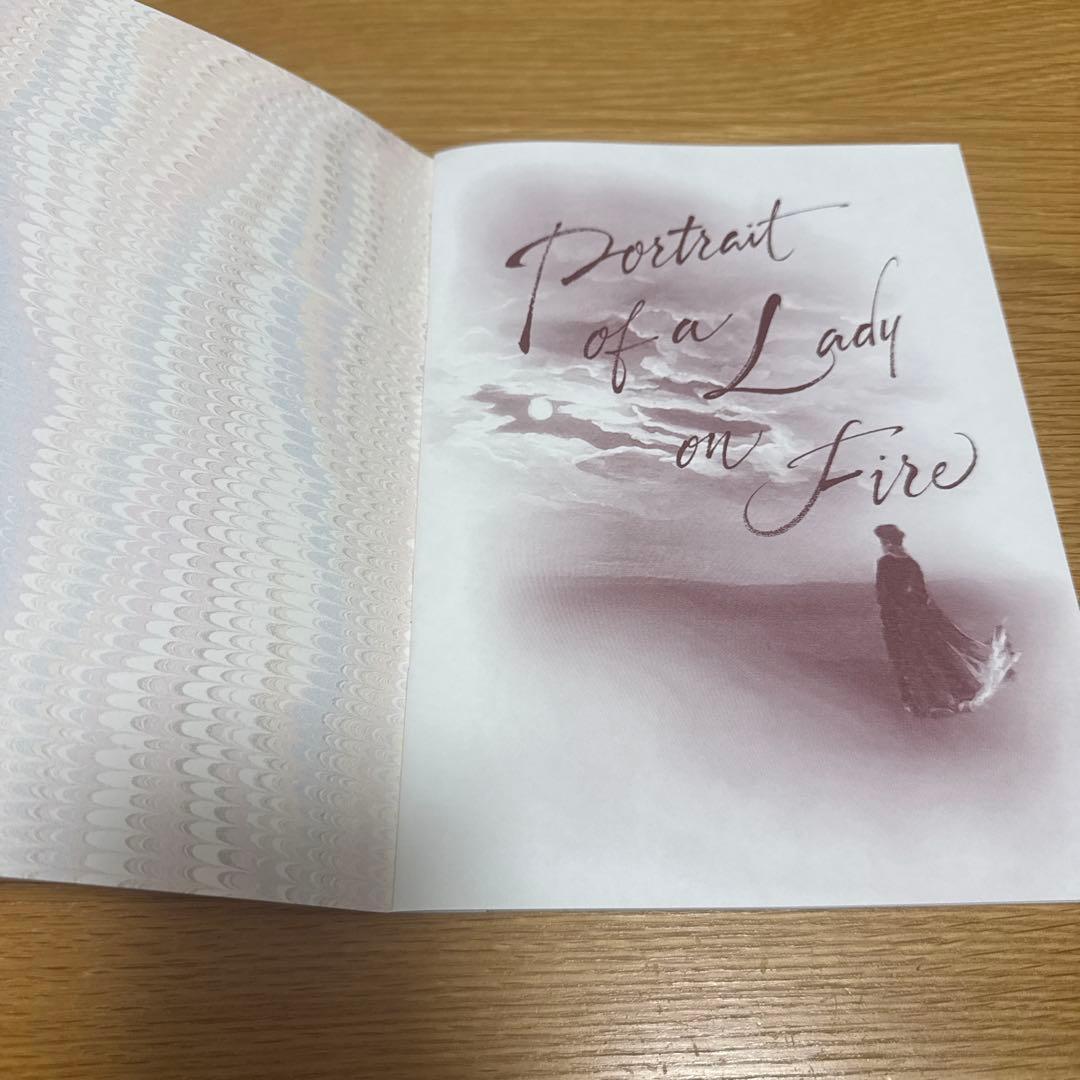 Portrait
of a Lady
on Fire